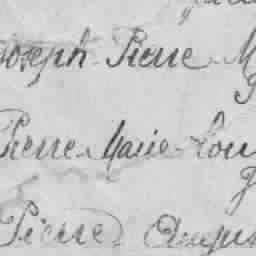 Joseph Pierre M
Pierre Marie Lou
Pierre Augus